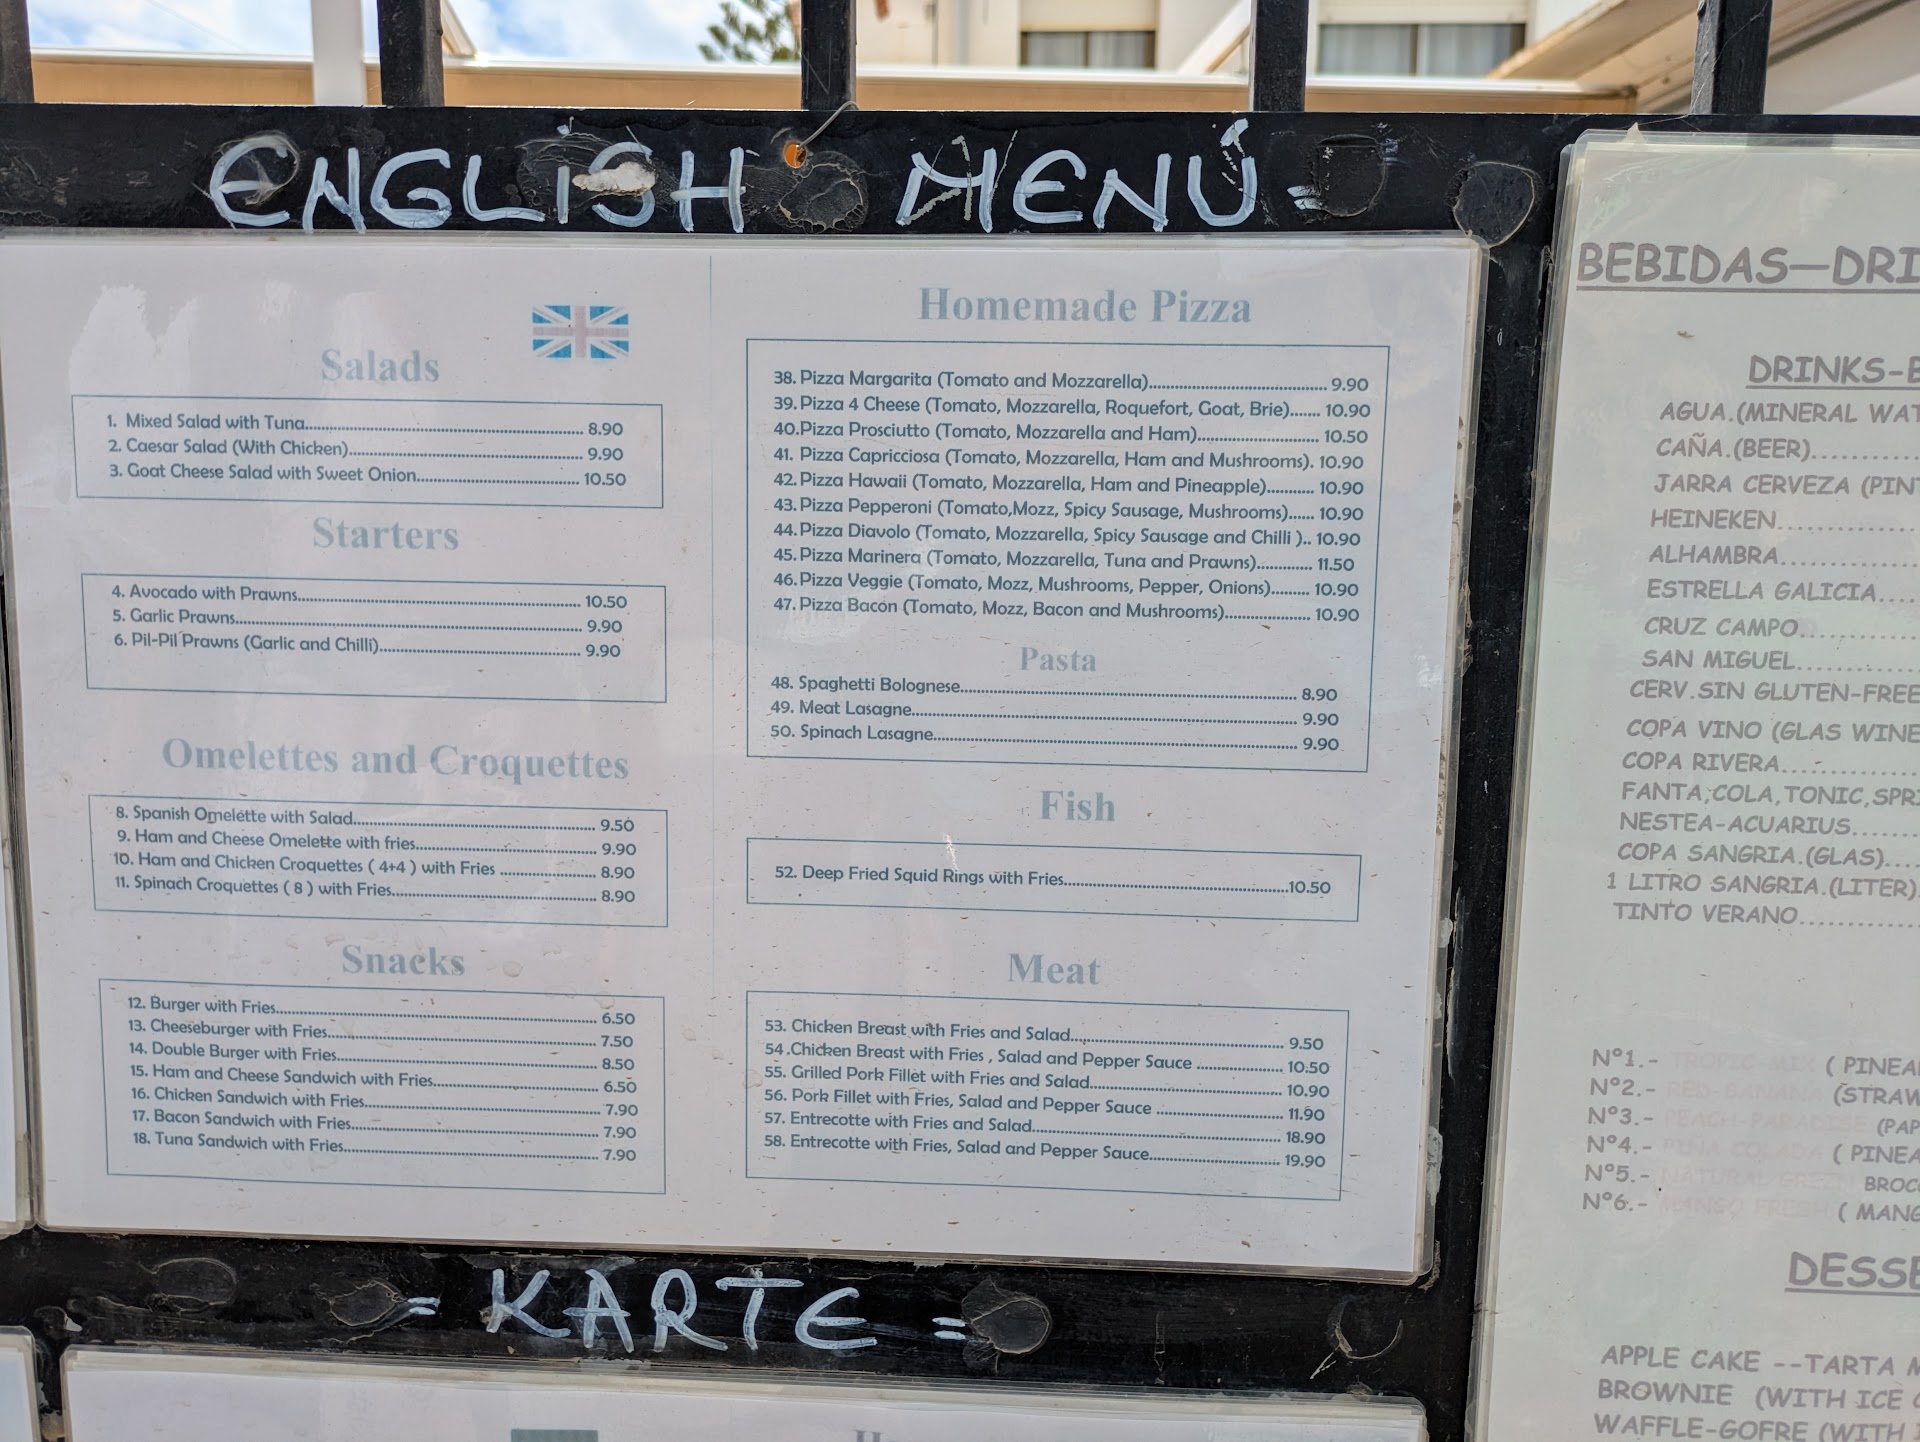 ENGLISH MENÚ=
Salads
1. Mixed Salad with Tuna........ 8.90
2. Caesar Salad (With Chicken)........ 9.90
3. Goat Cheese Salad with Sweet Onion........ 10.50
Starters
4. Avocado with Prawns........ 10.50
5. Garlic Prawns........ 9.90
6. Pil-Pil Prawns (Garlic and Chilli)........ 9.90
Omelettes and Croquettes
8. Spanish Omelette with Salad........ 9.50
9. Ham and Cheese Omelette with fries........ 9.90
10. Ham and Chicken Croquettes ( 4+4 ) with Fries ........ 8.90
11. Spinach Croquettes ( 8 ) with Fries........ 8.90
Snacks
12. Burger with Fries........ 6.50
13. Cheeseburger with Fries........ 7.50
14. Double Burger with Fries........ 8.50
15. Ham and Cheese Sandwich with Fries........ 6.50
16. Chicken Sandwich with Fries........ 7.90
17. Bacon Sandwich with Fries........ 7.90
18. Tuna Sandwich with Fries........ 7.90
Homemade Pizza
38. Pizza Margarita (Tomato and Mozzarella)........ 9.90
39. Pizza 4 Cheese (Tomato, Mozzarella, Roquefort, Goat, Brie)....... 10.90
40.Pizza Prosciutto (Tomato, Mozzarella and Ham)........ 10.50
41. Pizza Capricciosa (Tomato, Mozzarella, Ham and Mushrooms). 10.90
42. Pizza Hawaii (Tomato, Mozzarella, Ham and Pineapple)........... 10.90
43. Pizza Pepperoni (Tomato,Mozz, Spicy Sausage, Mushrooms)...... 10.90
44. Pizza Diavolo (Tomato, Mozzarella, Spicy Sausage and Chilli ).. 10.90
45. Pizza Marinera (Tomato, Mozzarella, Tuna and Prawns)............. 11.50
46. Pizza Veggie (Tomato, Mozz, Mushrooms, Pepper, Onions)......... 10.90
47. Pizza Bacon (Tomato, Mozz, Bacon and Mushrooms)........ 10.90
Pasta
48. Spaghetti Bolognese........ 8.90
49. Meat Lasagne........ 9.90
50. Spinach Lasagne........ 9.90
Fish
52. Deep Fried Squid Rings with Fries........10.50
Meat
53. Chicken Breast with Fries and Salad........ 9.50
54 .Chicken Breast with Fries , Salad and Pepper Sauce ........ 10.50
55. Grilled Pork Fillet with Fries and Salad........ 10.90
56. Pork Fillet with Fries, Salad and Pepper Sauce ........ 11.90
57. Entrecotte with Fries and Salad........ 18.90
58. Entrecotte with Fries, Salad and Pepper Sauce........ 19.90
= KARTE =
BEBIDAS—DRI
DRINKS-B
AGUA.(MINERAL WAT
CAÑA.(BEER)........
JARRA CERVEZA (PINT
HEINEKEN........
ALHAMBRA........
ESTRELLA GALICIA....
CRUZ CAMPO........
SAN MIGUEL........
CERV.SIN GLUTEN-FREE
COPA VINO (GLAS WINE
COPA RIVERA........
FANTA,COLA,TONIC,SPRI
NESTEA-ACUARIUS......
COPA SANGRIA.(GLAS)....
1 LITRO SANGRIA.(LITER)
TINTO VERANO........
Nº1.- TROPIC-MIX ( PINEA
Nº2.- RED-BANANA (STRAW
Nº3.- PEACH-PARADISE (PAP
Nº4.- PIÑA COLADA ( PINEA
Nº5.- NATURAL GREEN BROC
Nº6.- MANGO FRESH ( MANG
DESSE
APPLE CAKE --TARTA M
BROWNIE (WITH ICE C
WAFFLE-GOFRE (WITH I